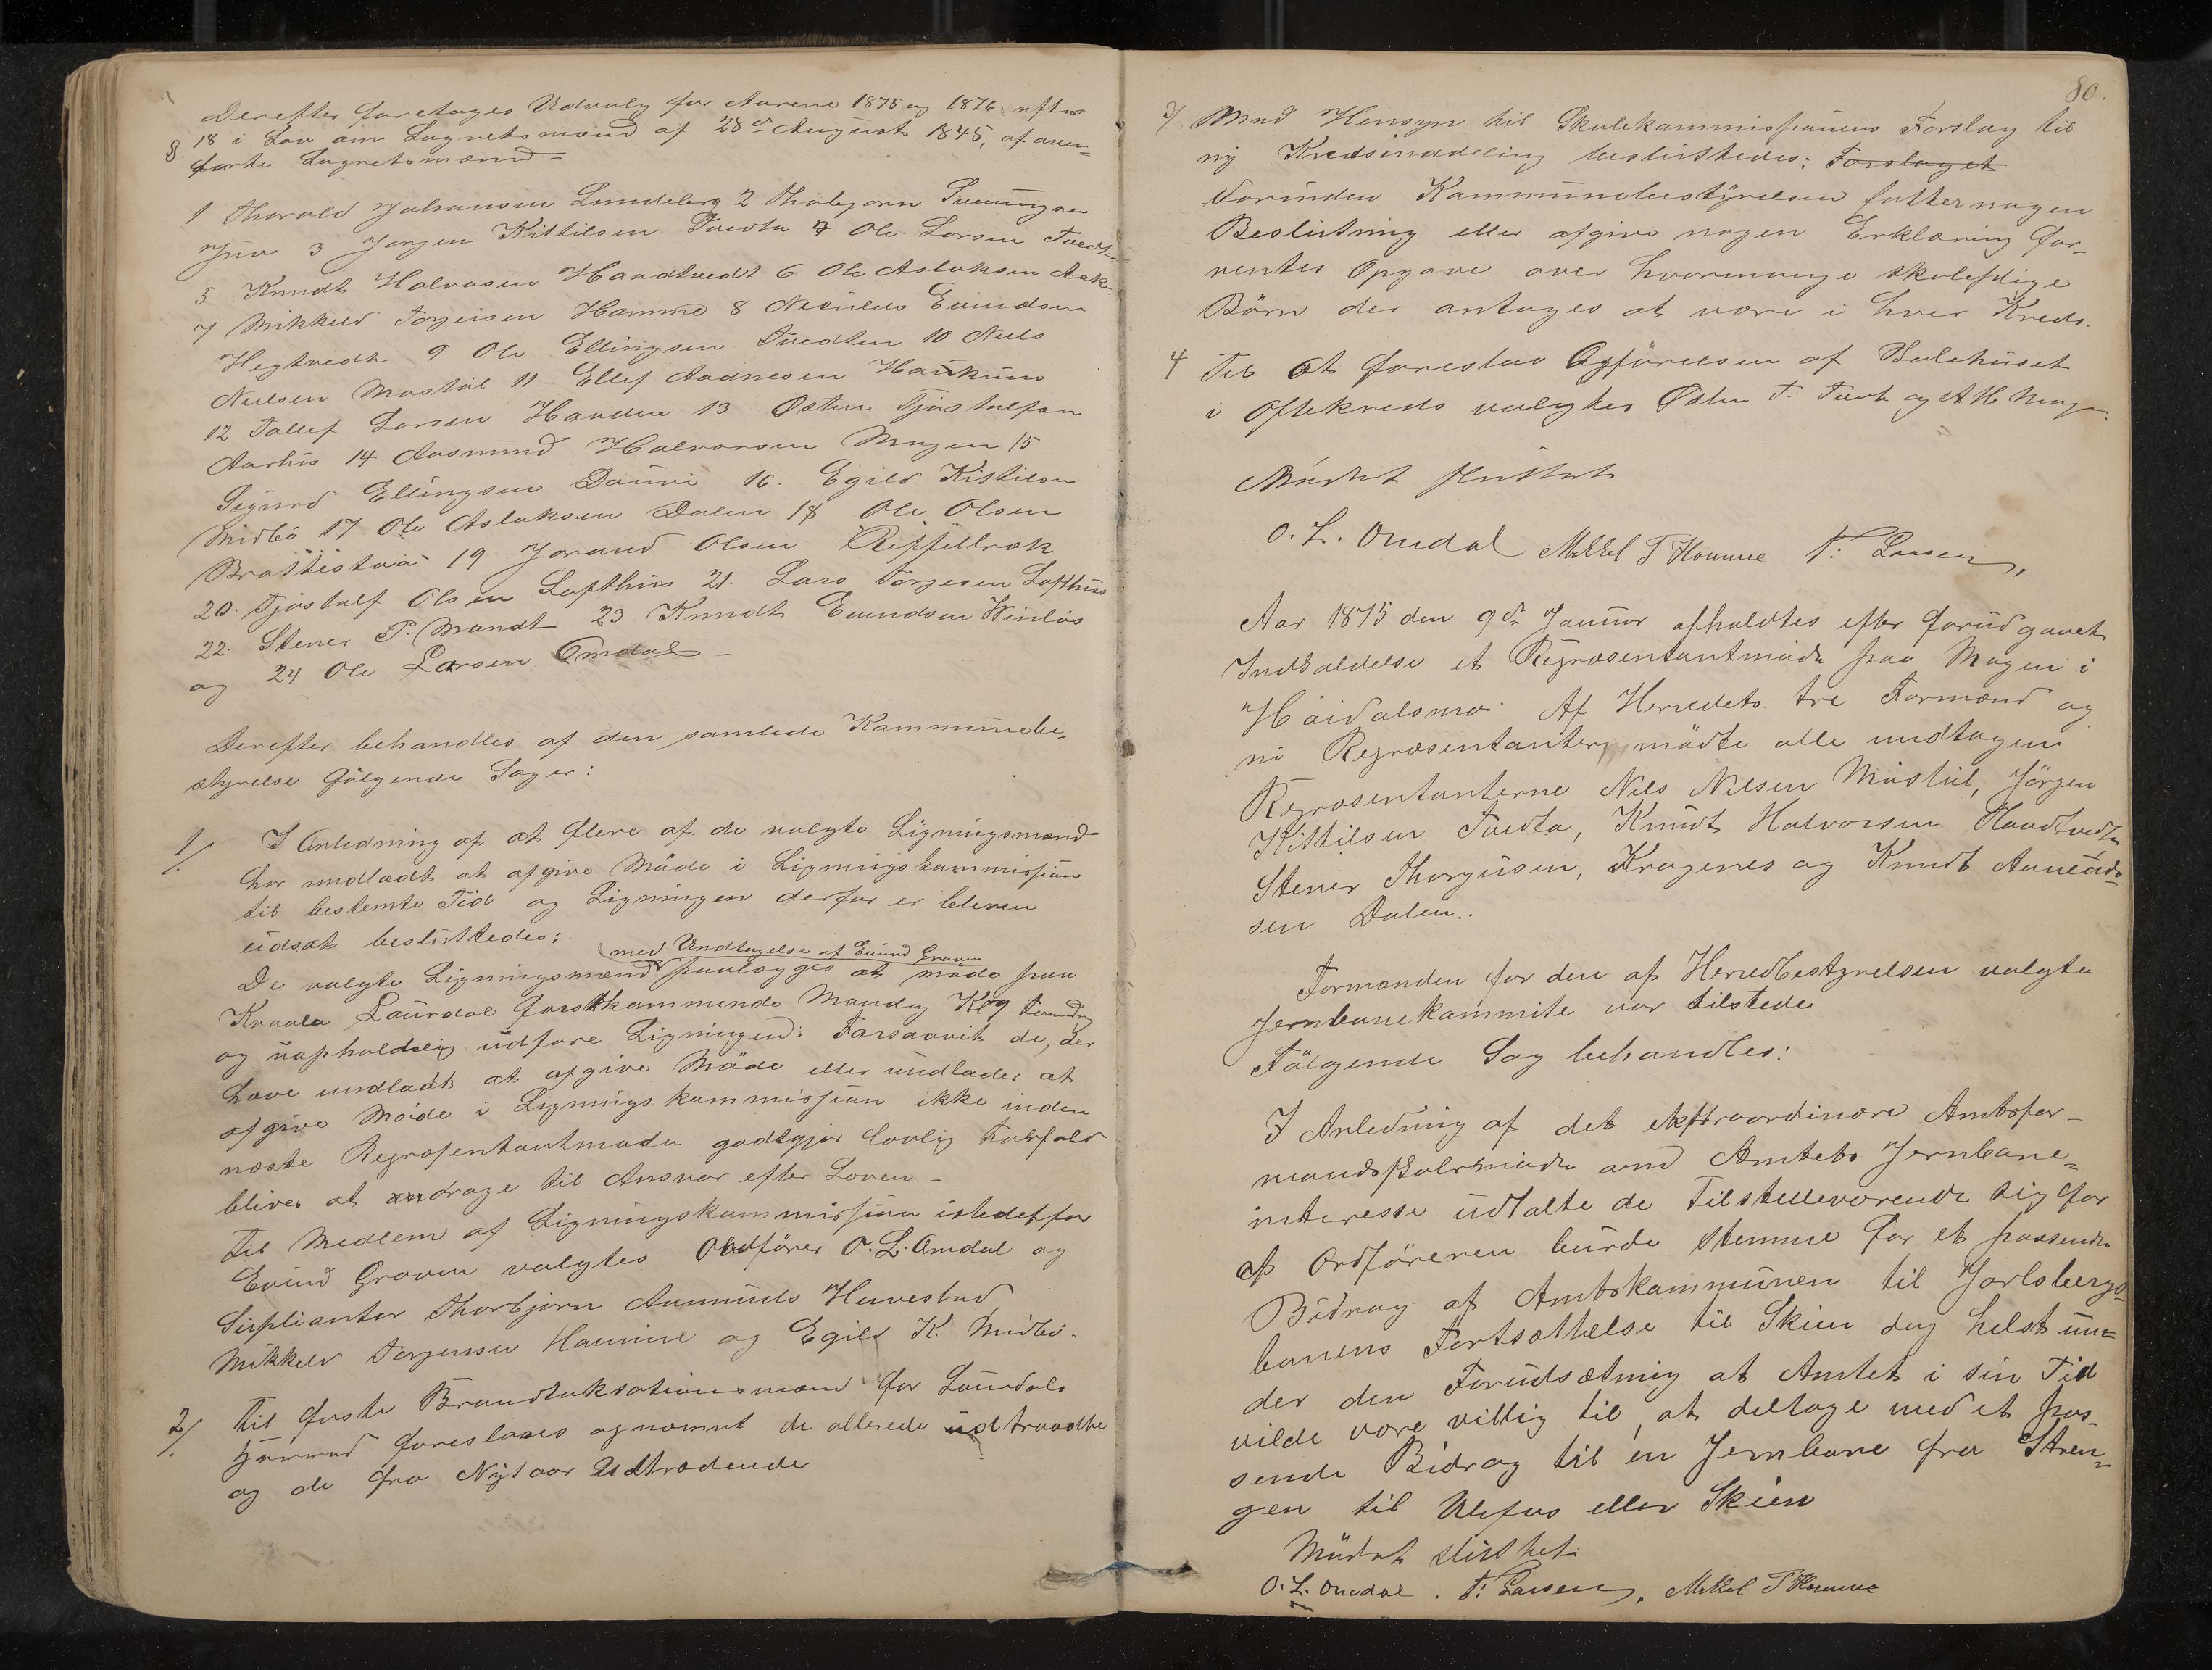 Derefter foretoges Udvalg for Aarene 1875 og 1876 efter
§. 18 i Lov om Lagretsmænd af 28de August 1845, af oven-
førte Lagretsmænd -
1 Thorold Johansen Lundeberg 2 Thobjørn
Juv 3 Jørgen Kittilsen Tvedta 4 Ole Larsen Tvedt
5 Knudt Halvorsen Haadtvedt 6 Ole Aslaksen Aake
7 Mikkel Torjeisen Homme 8 Niculus Evindsen
Hegtvedt 9 Ole Ellingsen Tvedten 10 Niels
Nielsen Mostøl 11 Ellef Aadnesen Haukum
12 Tallef Larsen Haaden 13 Østen Tjøstolfsen
Aarhus 14 Aasmund Halvorsen Mogen 15
Sigurd Ellingsen Douvi 16. Egild Kittilsen
Midbö 17 Ole Aslaksen Dalen 18 Ole Olsen
Brattestuā 19 Jorand Olsen
20. Tjøstolf Olsen Lofthus 21. Lars Torjesen Lofthus
22. Stener P. Mandt 23 Knudt Evindsen Vinlös
og 24 Ole Larsen Omdal -
Derefter behandles af den samlede Kommunebe-
styrelse følgende Sager:
1/. I Anledning af at flere af de valgte Ligningsmænd
har undladt at afgive Møde i Ligningskommissjon
til bestemte Tid og Ligningen derfor er bleven
udsat besluttedes:
(med Undtagelse af Evind Groven
De valgte Ligningsmænd paalægges at møde paa
Kraala Laurdal førstkommende Mandag
og uopholdelig udføre Ligningen: Forsaavit de, der
have undladt at afgive Møde eller undlader at
afgive Møde i Ligningskommissjon ikke inden
næste Repræsentantmøde godtgjør lovlig Forfald
bliver at andrage til Ansvar efter Loven -
Til Medlem af Ligningskommissjon istedetfor
Evind Groven valgtes Ordfører O. L. Omdal og
Suplianter Thorbjørn Aanunds Huvestad
Mikkel Torgersen Homme og Egild K. Midbö.
2/. Til faste Brandtaksationsmænd for Laurdals
foresloges opnævnt de allerede udtraadte
og de fra Nytaar Udtrædende
80.
3/ Med Hensyn til Skolekommissjonens Forslag til
ny Kredsinddeling besluttedes: Forslaget
Forinden Kommunebestyrelsen fatter nogen
Beslutning eller afgive nogen Erklæring for-
ventes Opgave over hvormange skolepligige
Börn der antages at være i hver Kreds.
4 Til at foreslaa Opførelsen af Skolehuset
i Oftekreds valgtes Østen T. Tveit og A H. Mogen.
Mødet sluttet
O. L. Omdal Mikkel T Homme T. Larsen,
Aar 1875 den 9de Januar afholdtes efter forudgaaet
Indkaldelse et Repræsentantmøde paa Mogen i
Høidalsmo. Af Herredets tre Formænd og
ni Repræsentanter mødte alle undtagen
Repræsentanterne Nils Nilsen Mostøl, Jörgen
Kittilsen Tvedta, Knudt Halvorsen Haadtvedt
Stener Thorgusen, Kragenes og Knudt Aanunds-
sen Dalen..
Formanden for den af Herredbestyrelsen valgte
Jernbanekommite var tilstede
Følgende Sag behandles:
I Anledning af det ekstraordinære Amtsfor-
mandskabsmøde om Amtets Jernbane-
interesse udtalte de Tilstedeværende sig for
at Ordføreren burde stemme for et passende
Bidrag af Amtskommunen til Jarlsbergs-
banens Fortsættelse til Skien dog helst un-
der den Forudsætning at Amtet i sin Tid
vilde være villig til at deltage med et pas-
sende Bidrag til en Jernbane fra Stren-
gen til Ulefos eller Skien
Mødet sluttet
O. L. Omdal. T. Larsen, Mikkel T Homme